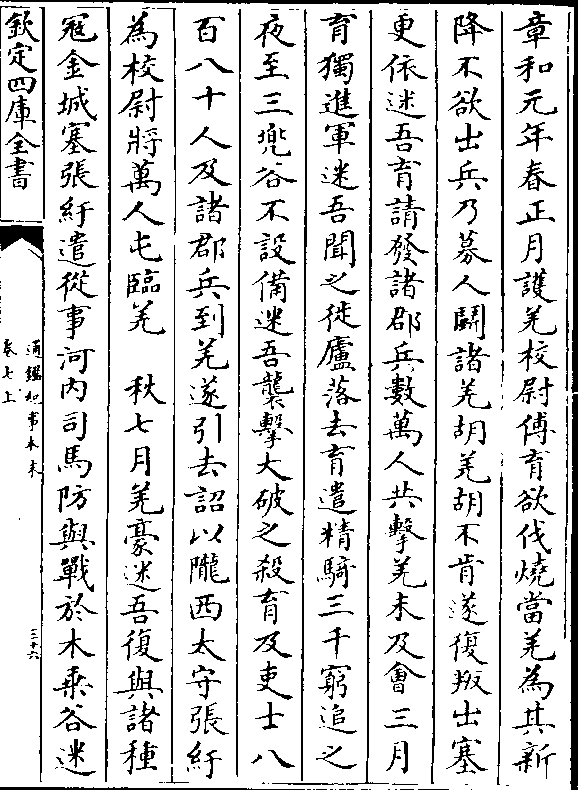 章和元年春正月護羌校尉傅育欲伐燒當羌為其新
降不欲出兵乃募人鬭諸羌胡羌胡不肯遂復叛出塞
更依迷吾育請發諸郡兵數萬人共擊羌未及會三月
育獨進軍迷吾聞之徙廬落去育遣精騎三千窮追之
夜至三兜谷不設備迷吾襲擊大破之殺育及吏士八
百八十人及諸郡兵到羌遂引去詔以隴西太守張紆
為校尉將萬人屯臨羌　秋七月羌豪迷吾復與諸種
寇金城塞張紆遣從事河内司馬防與戰於木乗谷迷
欽定四庫全書
通鑑紀事本末
卷七上
三十六